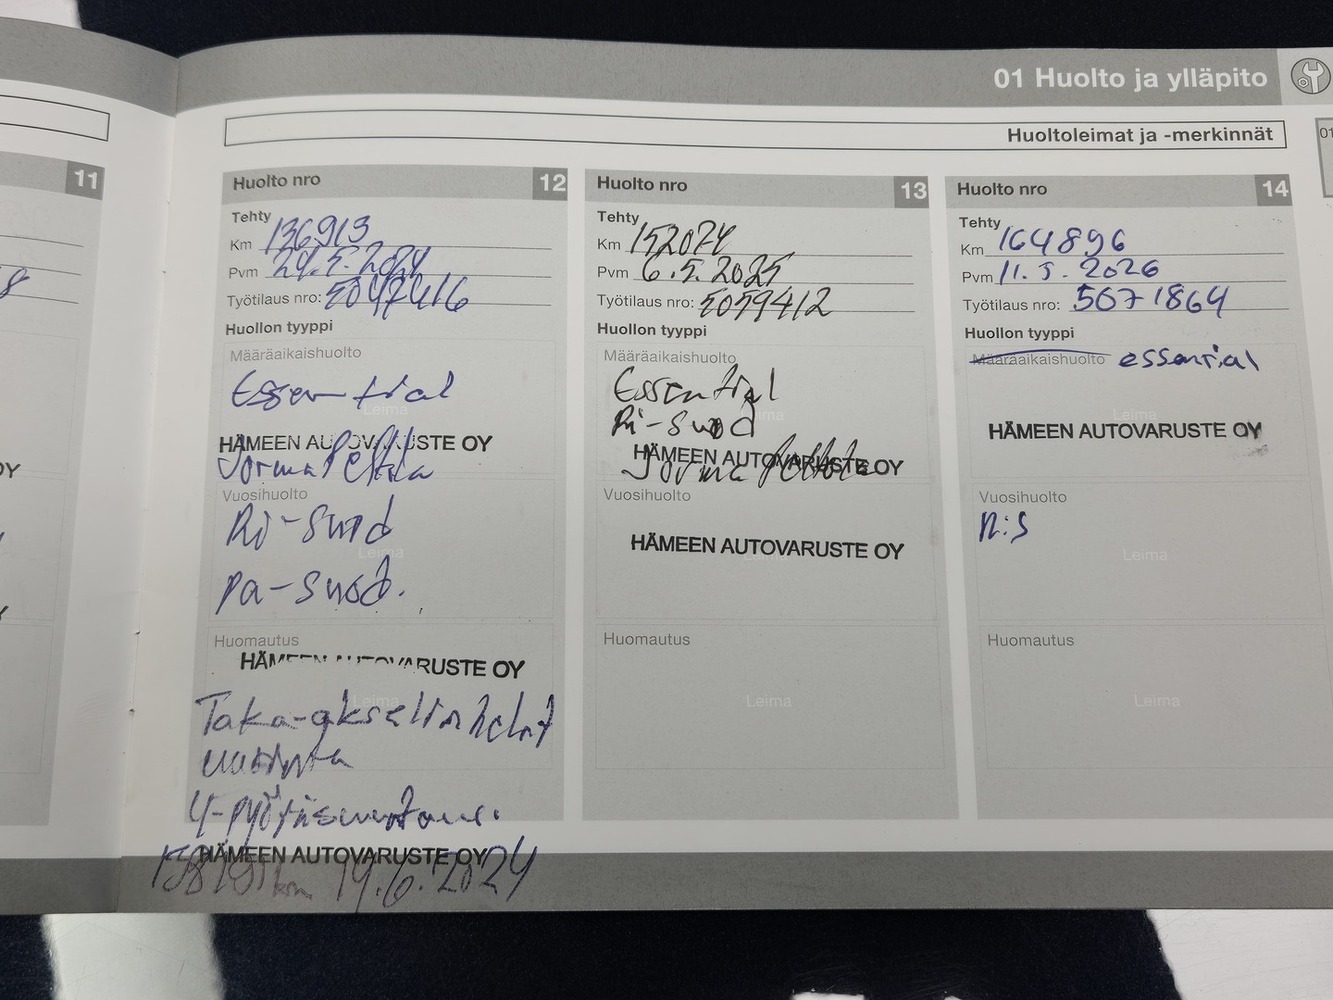 01 Huolto ja ylläpito
Huoltoleimat ja -merkinnät
01
11
8
OY
Huolto nro 12
Tehty
Km 136913
Pvm 29.5.2024
Työtilaus nro: 5047416
Huollon tyyppi
Määräaikaishuolto
Essential
Leima
HÄMEEN AUTOVARUSTE OY
Jorma
Vuosihuolto
Ri-Suod
Leima
pa-suod.
Huomautus
HÄMEEN AUTOVARUSTE OY
Leima
Taka-akselin helat
uusittu
4-pyöräsuuntaus.
HÄMEEN AUTOVARUSTE OY
km 19.6.2024
Huolto nro 13
Tehty
Km 152074
Pvm 6.5.2025
Työtilaus nro: 5059412
Huollon tyyppi
Määräaikaishuolto
Essential
Leima
Ri-Suod
HÄMEEN AUTOVARUSTE OY
Jorma
Vuosihuolto
HÄMEEN AUTOVARUSTE OY
Huomautus
Leima
Huolto nro 14
Tehty
Km 164896
Pvm 11.5.2026
Työtilaus nro: 5071864
Huollon tyyppi
Määräaikaishuolto essential
Leima
HÄMEEN AUTOVARUSTE OY
Vuosihuolto
R:S
Leima
Huomautus
Leima